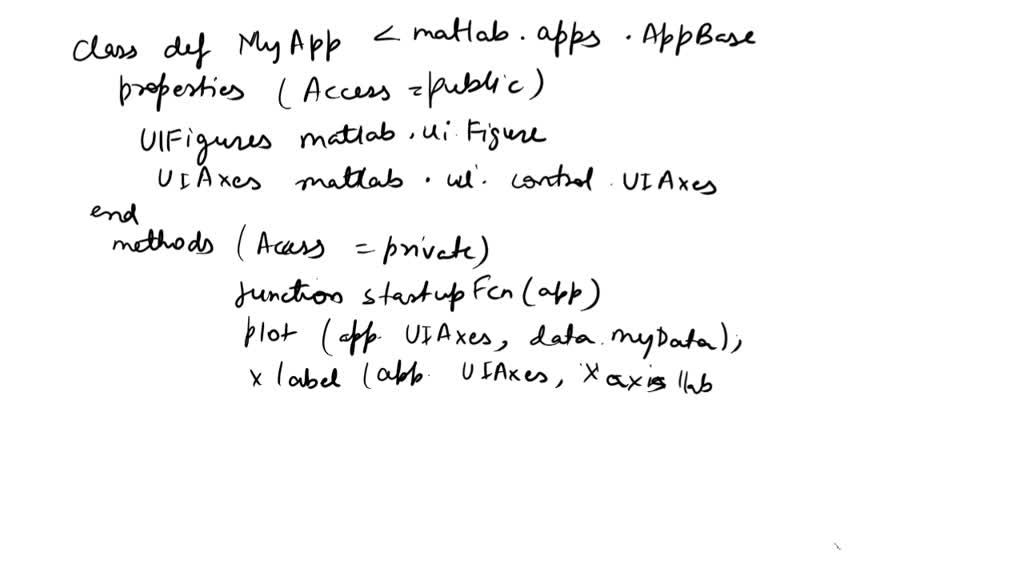 class def MyApp < matlab.apps.AppBase
properties (Access = public)
UIFigures matlab.ui.Figure
UIAxes matlab.ui.control.UIAxes
end
methods (Access = private)
function startupFcn(app)
plot (app. UIAxes, data.myData);
x label (app. UIAxes, X axis lab